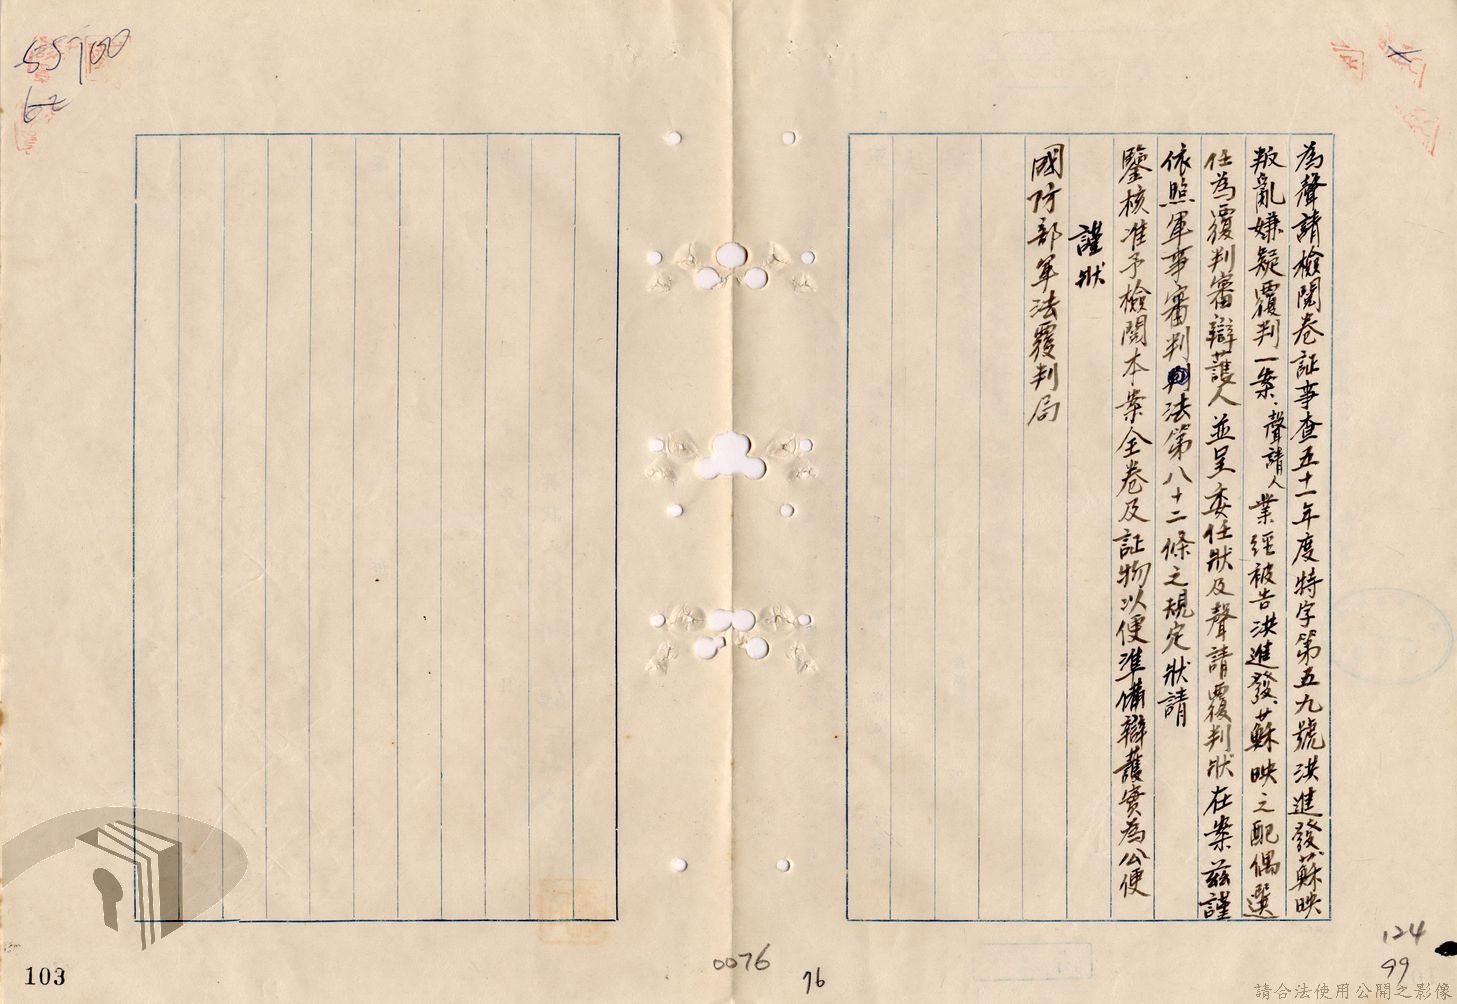 為聲請檢閱卷証事查五十一年度特字第五九號洪進發蘇映
叛亂嫌疑覆判一案、聲請人業經被告洪進發蘇映之配偶選
任為覆判審辯護人並呈委任狀及聲請覆判狀在案茲謹
依照軍事審判法第八十二條之規定狀請
鑒核准予檢閱本案全卷及証物以便準備辯護實為公便
謹狀
國防部軍法覆判局
55900
62
103
0076
76
124
99
請合法使用公開之影像